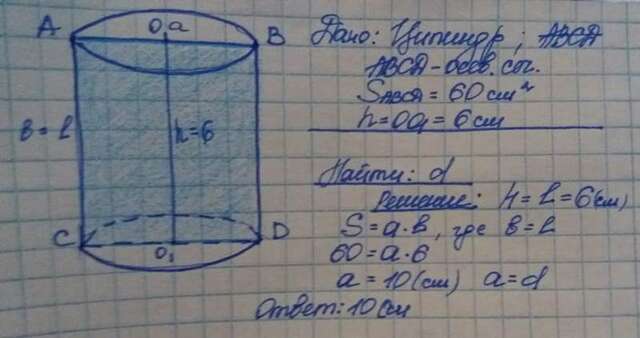 A O a B
b = l
h=6
C O₁ D
Дано: Цилиндр; ABCD
ABCD - осев. сеч.
S ABCD = 60 см²
h = OO₁ = 6 см
Найти: d
Решение: h = L = 6 (см)
S = a · b, где b = l
60 = a · 6
a = 10 (см) a = d
Ответ: 10 см